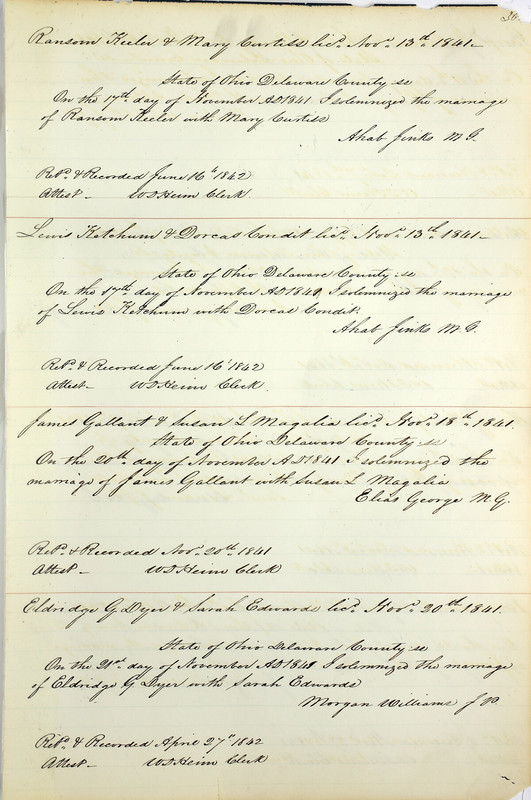 Ransom Keeler & Mary Curtiss licd. Novr. 13th 1841.
State of Ohio Delaware County ss
On the 17th day of November AD 1841 I solemnized the marriage
of Ransom Keeler with Mary Curtiss
Ahab Jinks M.G.
Retd. & Recorded June 16th 1842
Attest W D Heim Clerk
Lewis Ketchum & Dorcas Condit licd. Novr. 13th 1841.
State of Ohio Delaware County ss
On the 17th day of November AD 1841, I solemnized the marriage
of Lewis Ketchum with Dorcas Condit.
Ahab Jinks M.G.
Retd. & Recorded June 16th 1842
Attest W D Heim Clerk
James Gallant & Susan L Magalia licd. Novr. 18th 1841.
State of Ohio Delaware County ss
On the 20th day of November AD 1841 I solemnized the
marriage of James Gallant with Susan L Magalia
Elias George M.G.
Retd. & Recorded Novr. 20th 1841
Attest W D Heim Clerk
Eldridge G Dyer & Sarah Edwards licd. Novr. 20th 1841.
State of Ohio Delaware County ss
On the 21st day of November AD 1841 I solemnized the marriage
of Eldridge G Dyer with Sarah Edwards
Morgan Williams J P.
Retd. & Recorded April 27th 1842
Attest W D Heim Clerk